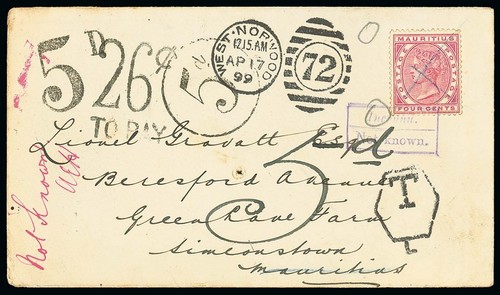 5D 26¢
TO PAY
5
WEST-NORWOOD
12.15.AM
AP 17
99
72
MAURITIUS
POSTAGE POSTAGE
FOUR CENTS
Inconnu.
Not known.
Lionel Gravatt Esq
5d
Beresford Avenue
Green Lave Farm
Simeonstown
Mauritius
T
Not Known